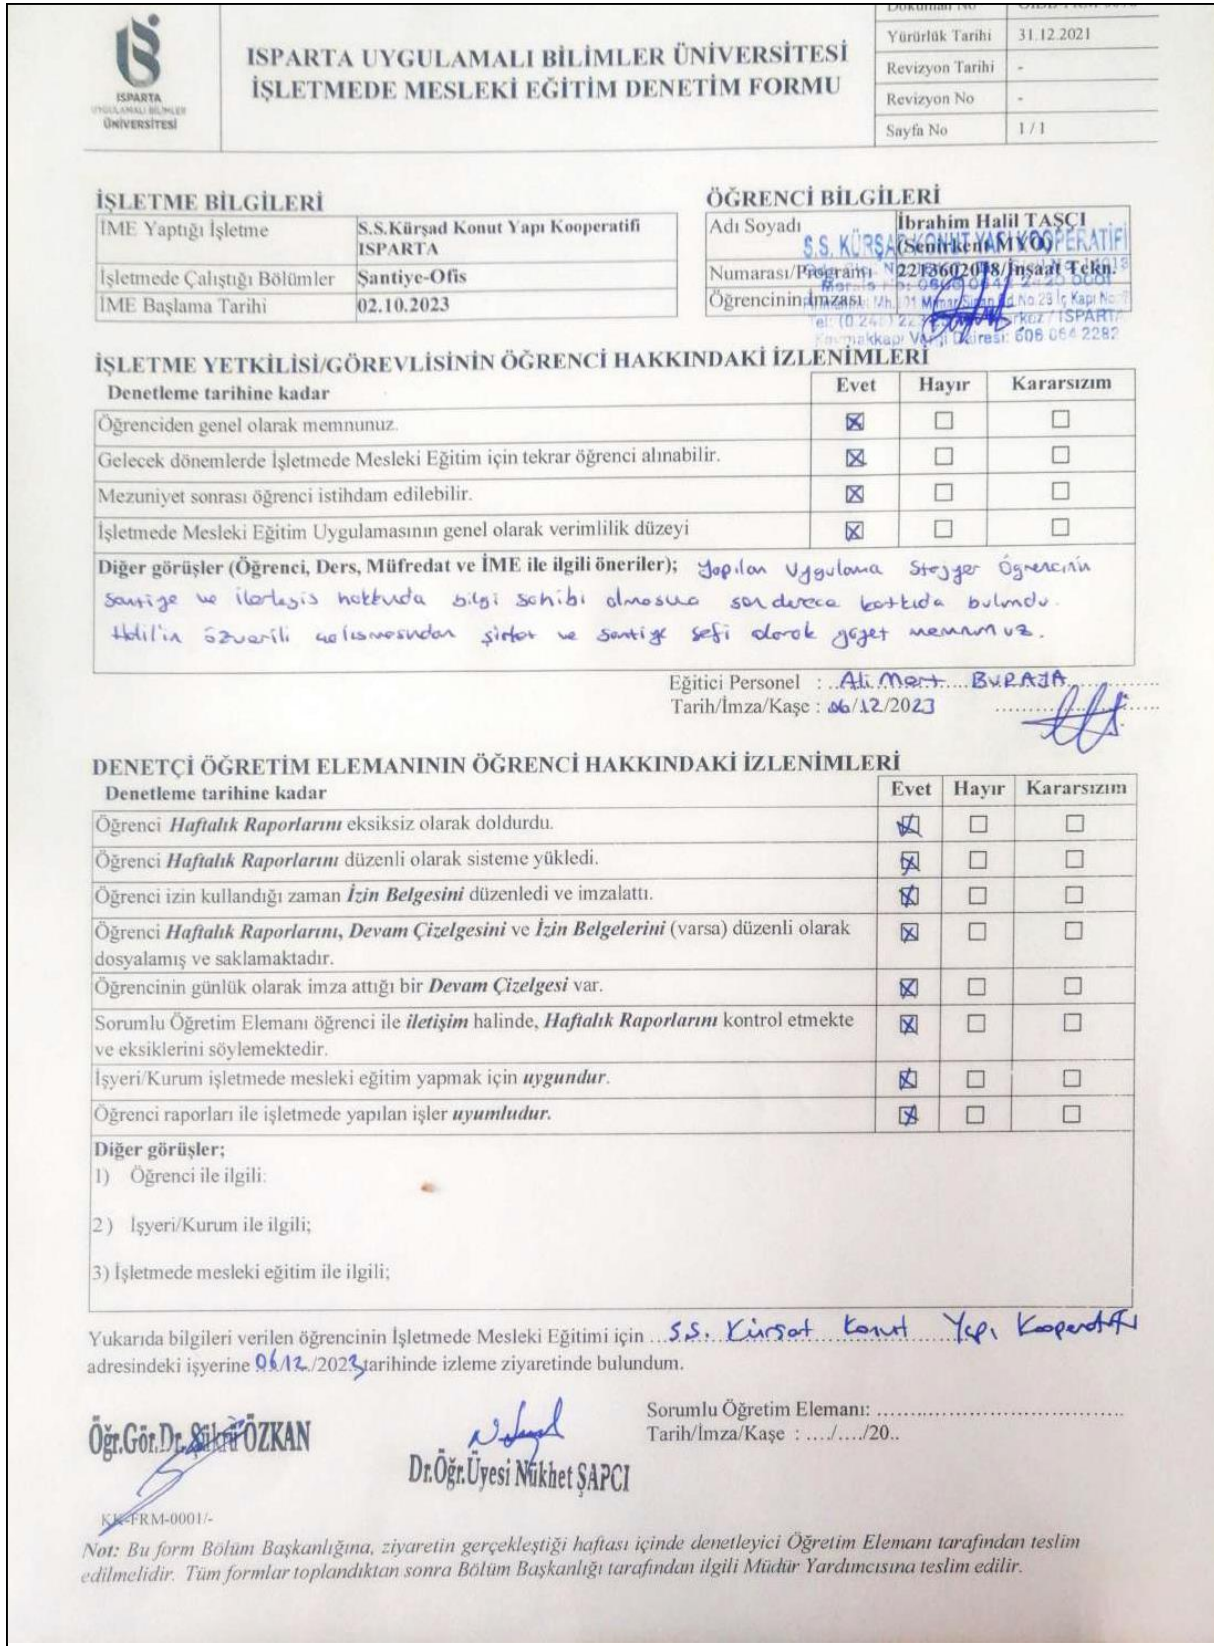 ISPARTA
UYGULAMALI BİLİMLER
ÜNİVERSİTESİ
ISPARTA UYGULAMALI BİLİMLER ÜNİVERSİTESİ
İŞLETMEDE MESLEKİ EĞİTİM DENETİM FORMU
Yürürlük Tarihi 31.12.2021
Revizyon Tarihi -
Revizyon No -
Sayfa No 1 / 1
İŞLETME BİLGİLERİ
İME Yaptığı İşletme S.S.Kürşad Konut Yapı Kooperatifi
ISPARTA
İşletmede Çalıştığı Bölümler Şantiye-Ofis
İME Başlama Tarihi 02.10.2023
ÖĞRENCİ BİLGİLERİ
Adı Soyadı İbrahim Halil TAŞÇI
(Senirkent MYO)
S.S. KÜRŞAD KONUT YAPI KOOPERATİFİ
Numarası/Programı /İnşaat Tekn.
Öğrencinin İmzası
606 064 2282
İŞLETME YETKİLİSİ/GÖREVLİSİNİN ÖĞRENCİ HAKKINDAKİ İZLENİMLERİ
Denetleme tarihine kadar Evet Hayır Kararsızım
Öğrenciden genel olarak memnunuz.
Gelecek dönemlerde İşletmede Mesleki Eğitim için tekrar öğrenci alınabilir.
Mezuniyet sonrası öğrenci istihdam edilebilir.
İşletmede Mesleki Eğitim Uygulamasının genel olarak verimlilik düzeyi
Diğer görüşler (Öğrenci, Ders, Müfredat ve İME ile ilgili öneriler); Yapılan Uygulama Stajyer Öğrencinin
şantiye ve ilerleyiş hakkında bilgi sahibi olmasına son derece katkıda bulundu.
Halil'in özverili çalışmasından şirket ve şantiye şefi olarak gayet memnunuz.
Eğitici Personel : ..Ali Mert.... BURAJA
Tarih/İmza/Kaşe : 06/12/2023
DENETÇİ ÖĞRETİM ELEMANININ ÖĞRENCİ HAKKINDAKİ İZLENİMLERİ
Denetleme tarihine kadar Evet Hayır Kararsızım
Öğrenci Haftalık Raporlarını eksiksiz olarak doldurdu.
Öğrenci Haftalık Raporlarını düzenli olarak sisteme yükledi.
Öğrenci izin kullandığı zaman İzin Belgesini düzenledi ve imzalattı.
Öğrenci Haftalık Raporlarını, Devam Çizelgesini ve İzin Belgelerini (varsa) düzenli olarak
dosyalamış ve saklamaktadır.
Öğrencinin günlük olarak imza attığı bir Devam Çizelgesi var.
Sorumlu Öğretim Elemanı öğrenci ile iletişim halinde, Haftalık Raporlarını kontrol etmekte
ve eksiklerini söylemektedir.
İşyeri/Kurum işletmede mesleki eğitim yapmak için uygundur.
Öğrenci raporları ile işletmede yapılan işler uyumludur.
Diğer görüşler;
1) Öğrenci ile ilgili:
2) İşyeri/Kurum ile ilgili;
3) İşletmede mesleki eğitim ile ilgili;
Yukarıda bilgileri verilen öğrencinin İşletmede Mesleki Eğitimi için ...S.S. Kürşat Konut Yapı Kooperatifi
adresindeki işyerine 06/12/2023 tarihinde izleme ziyaretinde bulundum.
Sorumlu Öğretim Elemanı: ....................................
Tarih/İmza/Kaşe : ..../..../20..
Öğr.Gör.Dr. Şükrü ÖZKAN
Dr.Öğr.Üyesi Nükhet ŞAPCI
KK-FRM-0001/-
Not: Bu form Bölüm Başkanlığına, ziyaretin gerçekleştiği haftası içinde denetleyici Öğretim Elemanı tarafından teslim
edilmelidir. Tüm formlar toplandıktan sonra Bölüm Başkanlığı tarafından ilgili Müdür Yardımcısına teslim edilir.